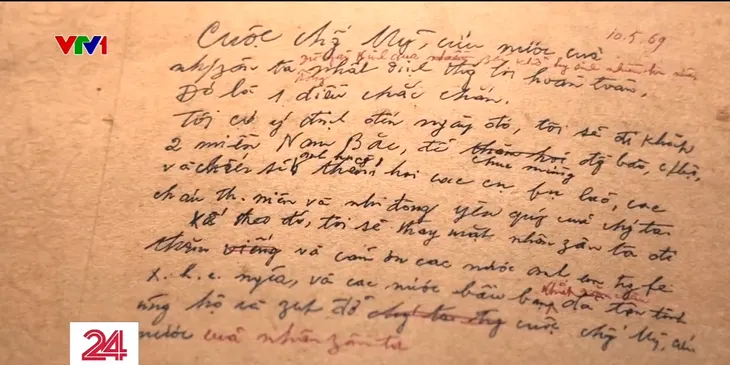 VTV1
10.5.69
Cuộc chố Mỹ, cứu nước cuả
nhân zân ta
nhất định thg lợi hoàn toàn.
Đó là 1 điều chắc chắn.
Tôi có ý định đến ngày đó, tôi sẽ đi khắp
2 miền Nam Bắc, để chúc mừng đg bào, c.bộ,
và chiến sĩ anh hùng thăm hỏi các cụ fụ lão, các
cháu th. niên và nhi đồng yêu quý cuả chg ta
Kế theo đó, tôi sẽ thay mặt nhân zân ta đi
thăm viếng và cám ơn các nước anh em
x. h. c. nghĩa, và các nước bầu bạn đã tận tình
ủng hộ và zúp đỡ cuộc chg Mỹ, cứu
nước cuả nhân zân ta
24